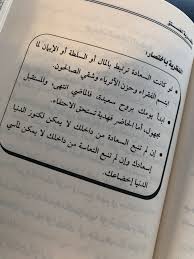 النظرية باختصار:
لو كانت السعادة ترتبط بالمال أو السلطة أو الأديان لما
ابتسم الفقراء وحزن الأثرياء وشقي الصالحون.
ابدأ يومك بروح سعيدة، فالماضي انتهى، والمستقبل
مجهول، أما الحاضر فهدية تستحق الاحتفاء.
إن لم تنبع السعادة من داخلك لا يمكن لكنوز الدنيا
إسعادك وإن لم تنبع التعاسة من داخلك لا يمكن
الدنيا إخضاعك.